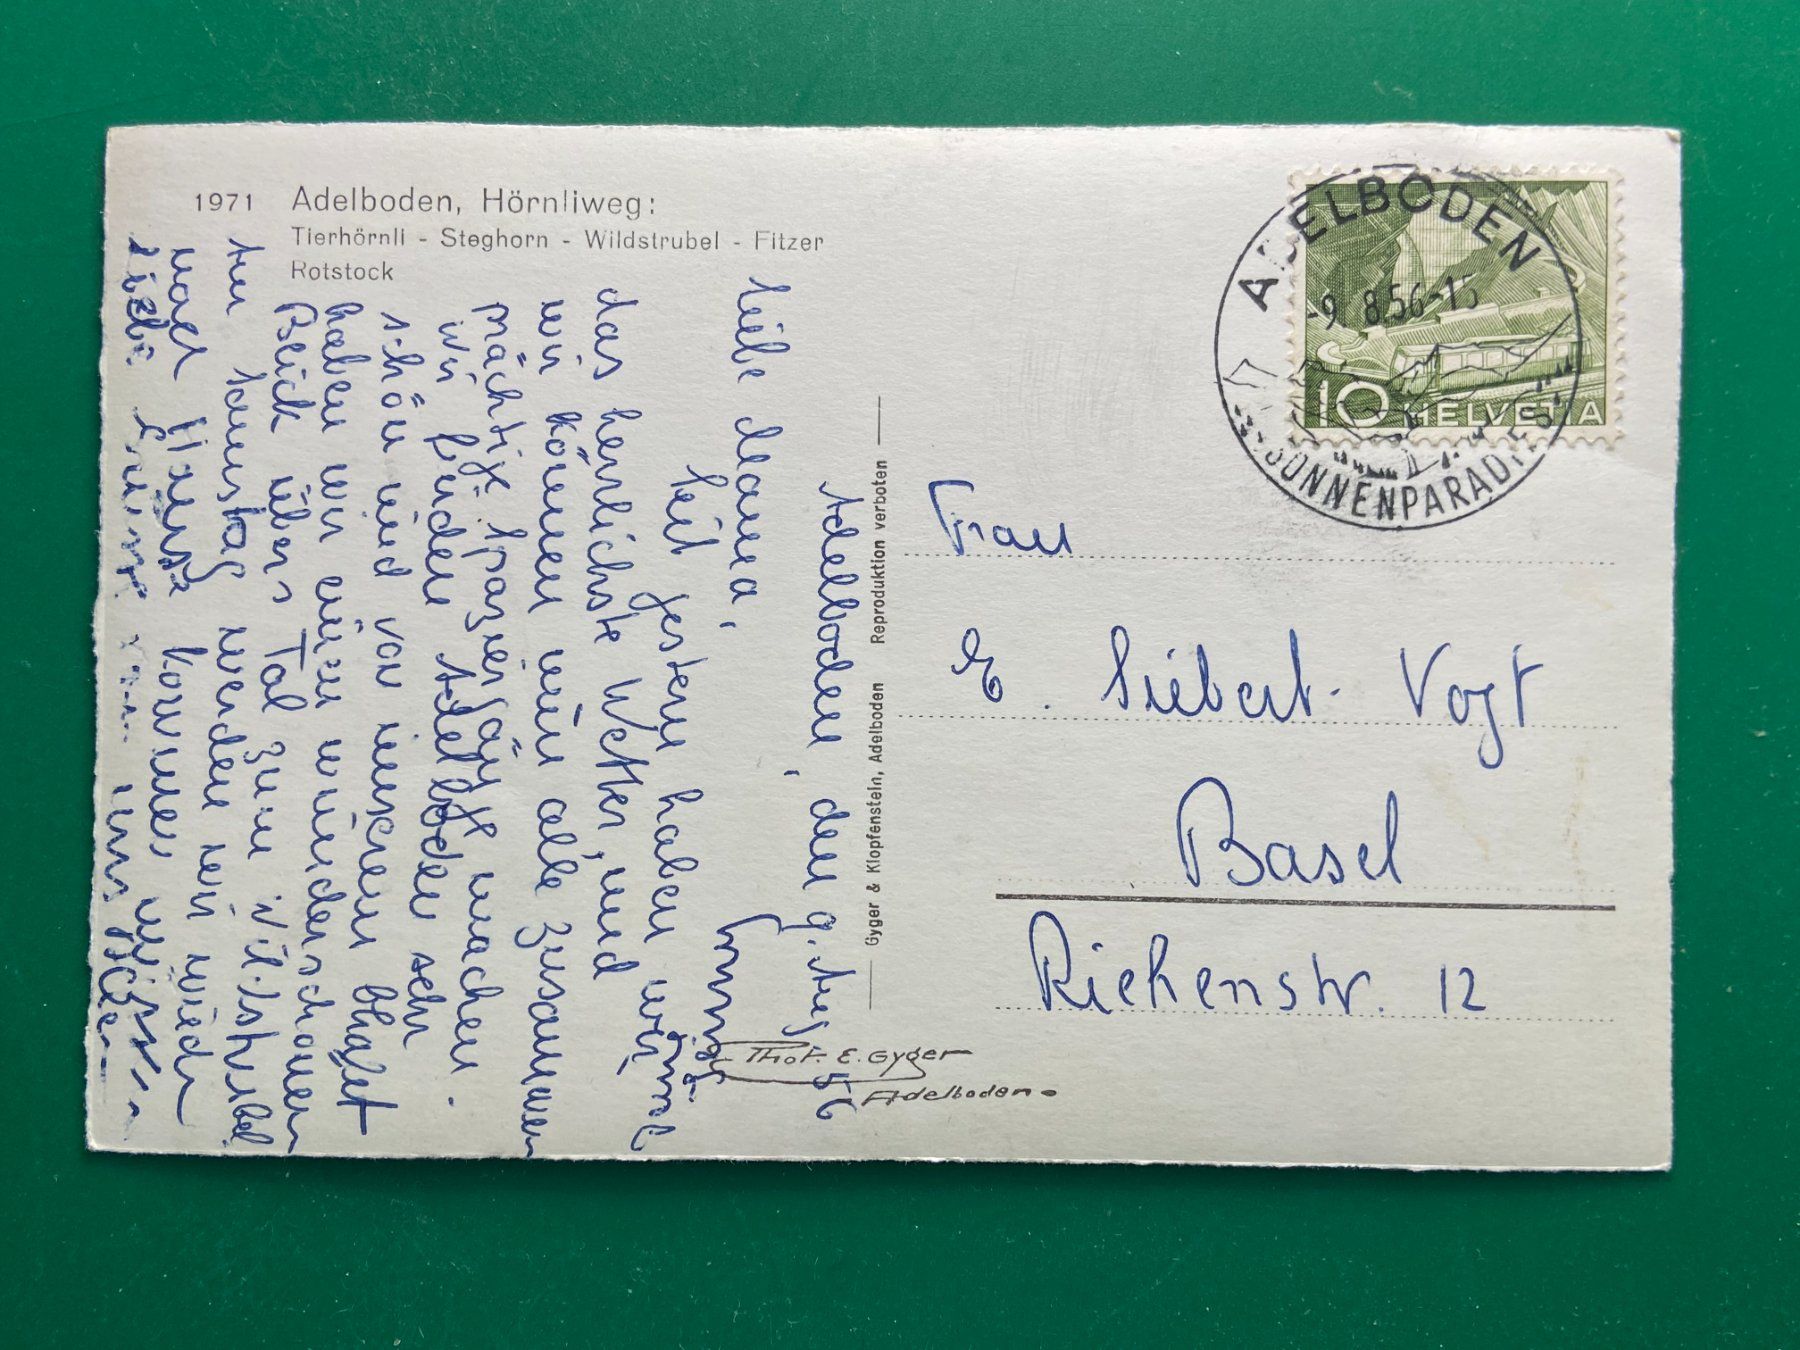 1971 Adelboden, Hörnliweg:
Tierhörnli - Steghorn - Wildstrubel - Fitzer
Rotstock
Adelboden, den 9. Aug. 56
Liebe Mama,
Seit gestern haben wir
das herrlichste Wetter, und
wir können nun alle zusammen
mächtige Spaziergänge machen.
Wir finden Adelboden sehr
schön und von unserem Chalet
haben wir einen wunderschönen
Blick übers Tal zum Wildstrubel
Am Samstag werden wir wieder
nach Hause kommen
liebe
Gyger & Klopfenstein, Adelboden Reproduktion verboten
Phot. E. Gyger
Adelboden.
ADELBODEN
-9. 8.56-15
SONNENPARADIES
10 HELVETIA
Frau
E. Siebert-Vogt
Basel
Riehenstr. 12